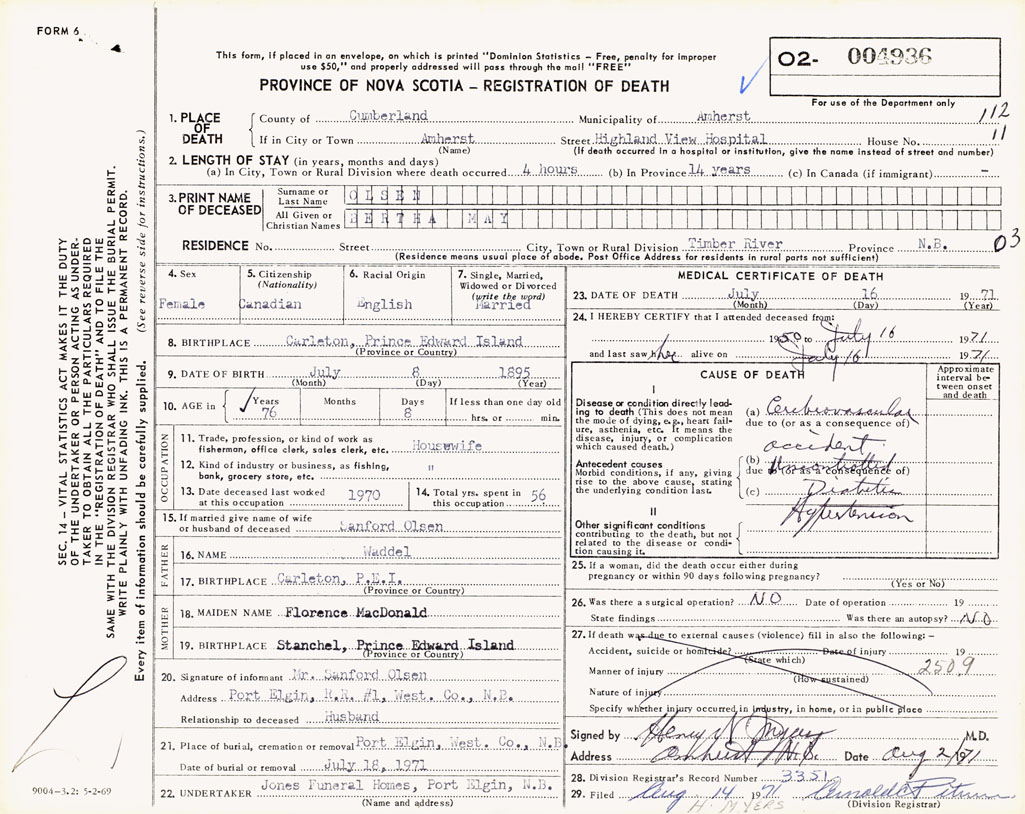 FORM 6
This form, if placed in an envelope, on which is printed "Dominion Statistics – Free, penalty for improper
use $50," and properly addressed will pass through the mail "FREE"
PROVINCE OF NOVA SCOTIA – REGISTRATION OF DEATH
O2- 004936
For use of the Department only
SEC. 14 – VITAL STATISTICS ACT MAKES IT THE DUTY
OF THE UNDERTAKER OR PERSON ACTING AS UNDER-
TAKER TO OBTAIN ALL THE PARTICULARS REQUIRED
IN THE "REGISTRATION OF DEATH" AND TO FILE THE
SAME WITH THE DIVISION REGISTRAR WHO SHALL ISSUE THE BURIAL PERMIT.
WRITE PLAINLY WITH UNFADING INK. THIS IS A PERMANENT RECORD.
Every item of information should be carefully supplied. (See reverse side for instructions.)
1. PLACE OF DEATH County of Cumberland Municipality of Amherst 112
If in City or Town Amherst Street Highland View Hospital House No. 11
(Name) (If death occurred in a hospital or institution, give the name instead of street and number)
2. LENGTH OF STAY (in years, months and days)
(a) In City, Town or Rural Division where death occurred 4 hours (b) In Province 14 years (c) In Canada (if immigrant) –
3. PRINT NAME OF DECEASED Surname or Last Name OLSEN
All Given or Christian Names BERTHA MAY
RESIDENCE No. Street City, Town or Rural Division Timber River Province N.B. 03
(Residence means usual place of abode. Post Office Address for residents in rural parts not sufficient)
4. Sex Female
5. Citizenship (Nationality) Canadian
6. Racial Origin English
7. Single, Married, Widowed or Divorced (write the word) Married
8. BIRTHPLACE Carleton, Prince Edward Island
(Province or Country)
9. DATE OF BIRTH July 8 1895
(Month) (Day) (Year)
10. AGE in Years 76 Months Days 8 If less than one day old hrs. or min.
OCCUPATION
11. Trade, profession, or kind of work as
fisherman, office clerk, sales clerk, etc. Housewife
12. Kind of industry or business, as fishing,
bank, grocery store, etc. "
13. Date deceased last worked at this occupation 1970
14. Total yrs. spent in this occupation 56
15. If married give name of wife
or husband of deceased Sanford Olsen
FATHER
16. NAME Waddel
17. BIRTHPLACE Carleton, P.E.I.
(Province or Country)
MOTHER
18. MAIDEN NAME Florence MacDonald
19. BIRTHPLACE Stanchel, Prince Edward Island
(Province or Country)
20. Signature of informant Mr. Sanford Olsen
Address Port Elgin, R.R. #1, West. Co., N.B.
Relationship to deceased Husband
21. Place of burial, cremation or removal Port Elgin, West. Co., N.B.
Date of burial or removal July 18, 1971
22. UNDERTAKER Jones Funeral Homes, Port Elgin, N.B.
(Name and address)
9004-3.2: 5-2-69
MEDICAL CERTIFICATE OF DEATH
23. DATE OF DEATH July 16 1971
(Month) (Day) (Year)
24. I HEREBY CERTIFY that I attended deceased from:
1950 to July 16 1971
and last saw her alive on July 16 1971
CAUSE OF DEATH
Approximate interval between onset and death
I
Disease or condition directly lead-
ing to death (This does not mean
the mode of dying, e.g., heart fail-
ure, asthenia, etc. It means the
disease, injury, or complication
which caused death.)
(a) Cerebrovascular
due to (or as a consequence of)
accident
Antecedent causes
Morbid conditions, if any, giving
rise to the above cause, stating
the underlying condition last.
(b)
due to (or as a consequence of)
(c) Diabetic
Hypertension
II
Other significant conditions
contributing to the death, but not
related to the disease or condi-
tion causing it.
25. If a woman, did the death occur either during
pregnancy or within 90 days following pregnancy?
(Yes or No)
26. Was there a surgical operation? NO Date of operation 19
State findings Was there an autopsy? NO
27. If death was due to external causes (violence) fill in also the following: –
Accident, suicide or homicide? Date of injury 19
(State which)
Manner of injury 2509
(How sustained)
Nature of injury
Specify whether injury occurred in industry, in home, or in public place
Signed by Henry N. Myers M.D.
Address Amherst, N.S. Date Aug 2/71
28. Division Registrar's Record Number 3351
29. Filed Aug 14 1971
H. MYERS (Division Registrar)